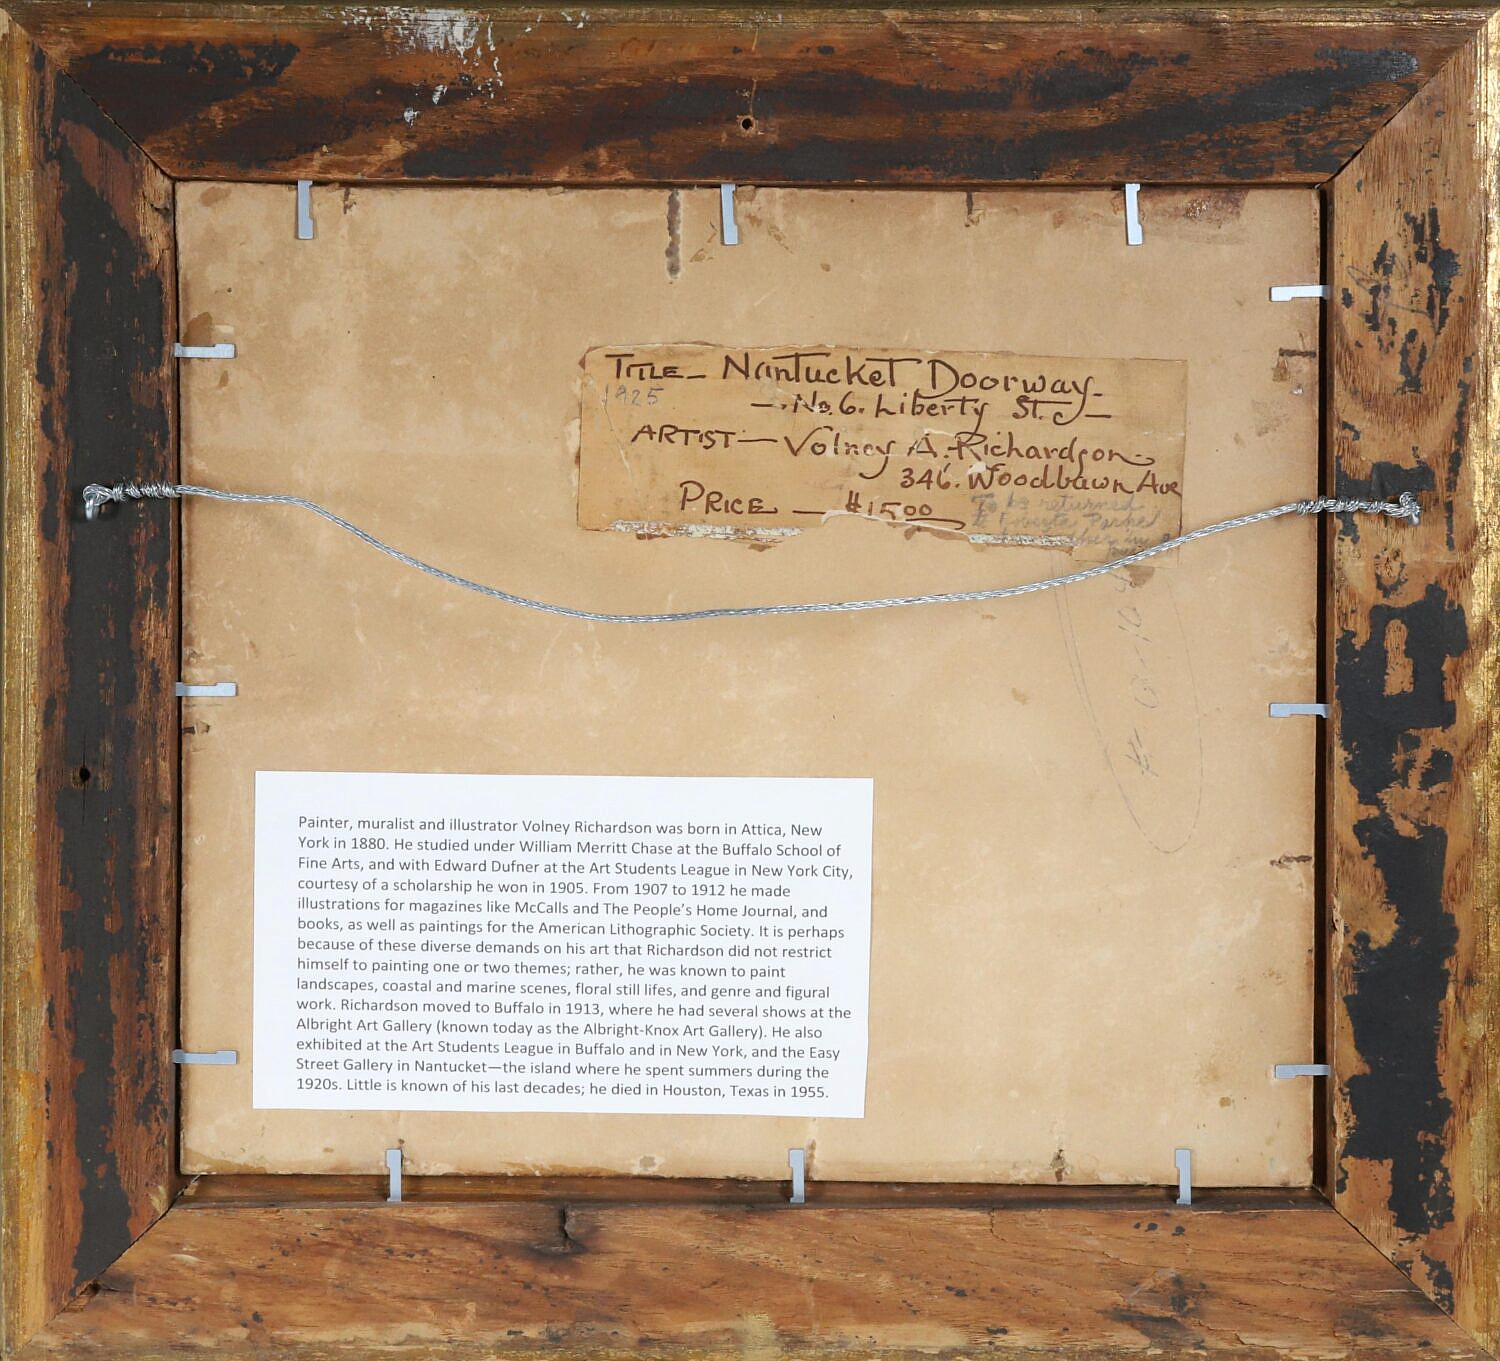 TITLE - Nantucket Doorway -
1925
- No. 6. Liberty St. -
ARTIST - Volney A. Richardson
346. Woodbawn Ave
PRICE - $15.00
To be returned
Painter, muralist and illustrator Volney Richardson was born in Attica, New
York in 1880. He studied under William Merritt Chase at the Buffalo School of
Fine Arts, and with Edward Dufner at the Art Students League in New York City,
courtesy of a scholarship he won in 1905. From 1907 to 1912 he made
illustrations for magazines like McCalls and The People's Home Journal, and
books, as well as paintings for the American Lithographic Society. It is perhaps
because of these diverse demands on his art that Richardson did not restrict
himself to painting one or two themes; rather, he was known to paint
landscapes, coastal and marine scenes, floral still lifes, and genre and figural
work. Richardson moved to Buffalo in 1913, where he had several shows at the
Albright Art Gallery (known today as the Albright-Knox Art Gallery). He also
exhibited at the Art Students League in Buffalo and in New York, and the Easy
Street Gallery in Nantucket—the island where he spent summers during the
1920s. Little is known of his last decades; he died in Houston, Texas in 1955.